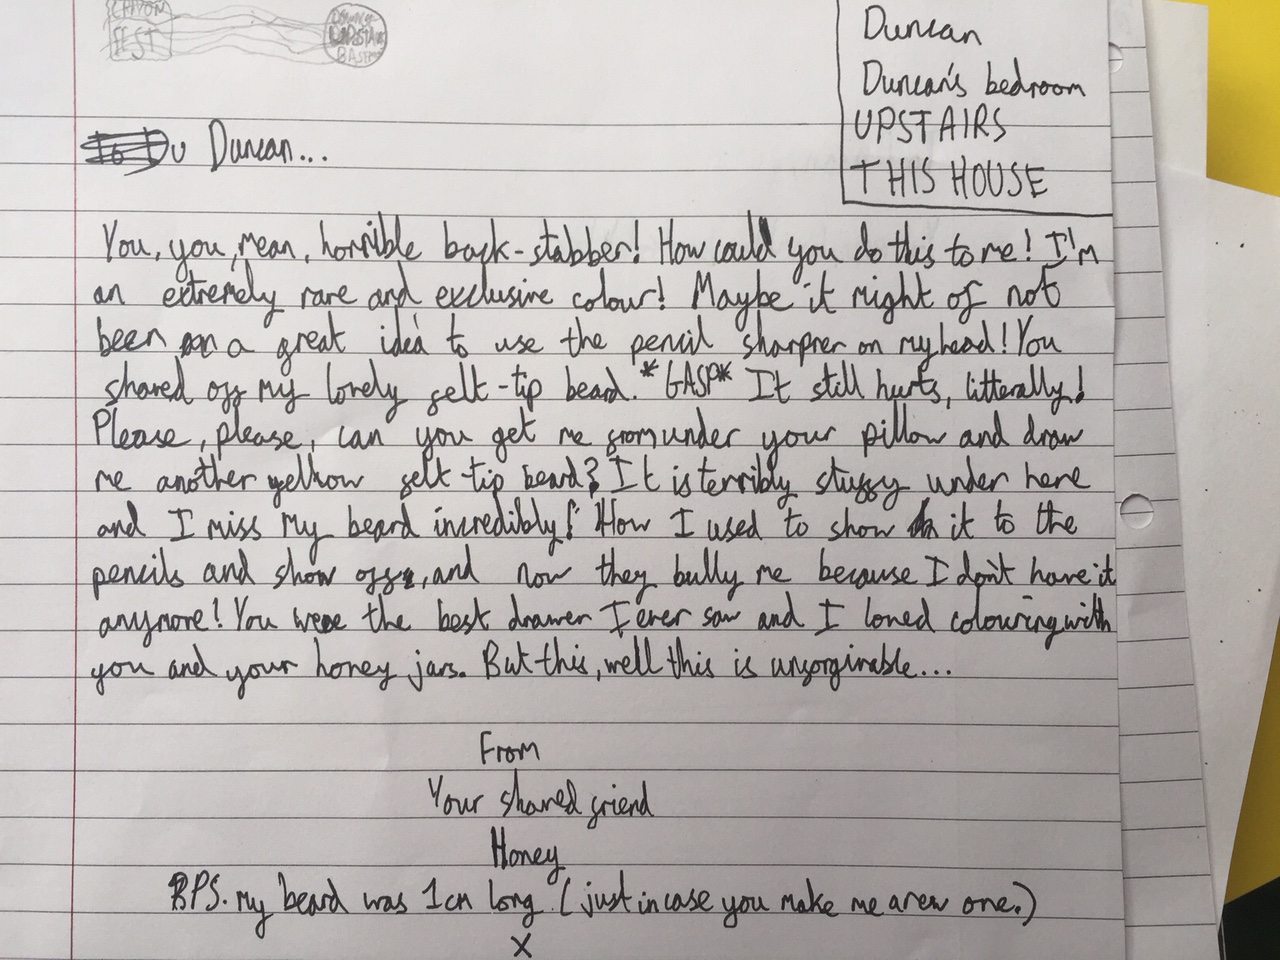 CRAYON
FEST
UPSTAIRS
BASE
Duncan
Duncan's bedroom
UPSTAIRS
THIS HOUSE
Duncan...
You, you, mean, horrible back-stabber! How could you do this to me! I'm
an extremely rare and exclusive colour! Maybe it might of not
been a great idea to use the pencil sharpner on my head! You
shaved off my lovely felt-tip beard. *GASP* It still hurts, litterally!
Please, please, can you get me from under your pillow and draw
me another yellow felt-tip beard? It is terribly stuffy under here
and I miss my beard incredibly! How I used to show it to the
pencils and show off, and now they bully me because I don't have it
anymore! You were the best drawer I ever saw and I loved colouring with
you and your honey jars. But this, well this is unforgivable...
From
Your shaved friend
Honey
PS. my beard was 1cm long (just in case you make me a new one.)
X